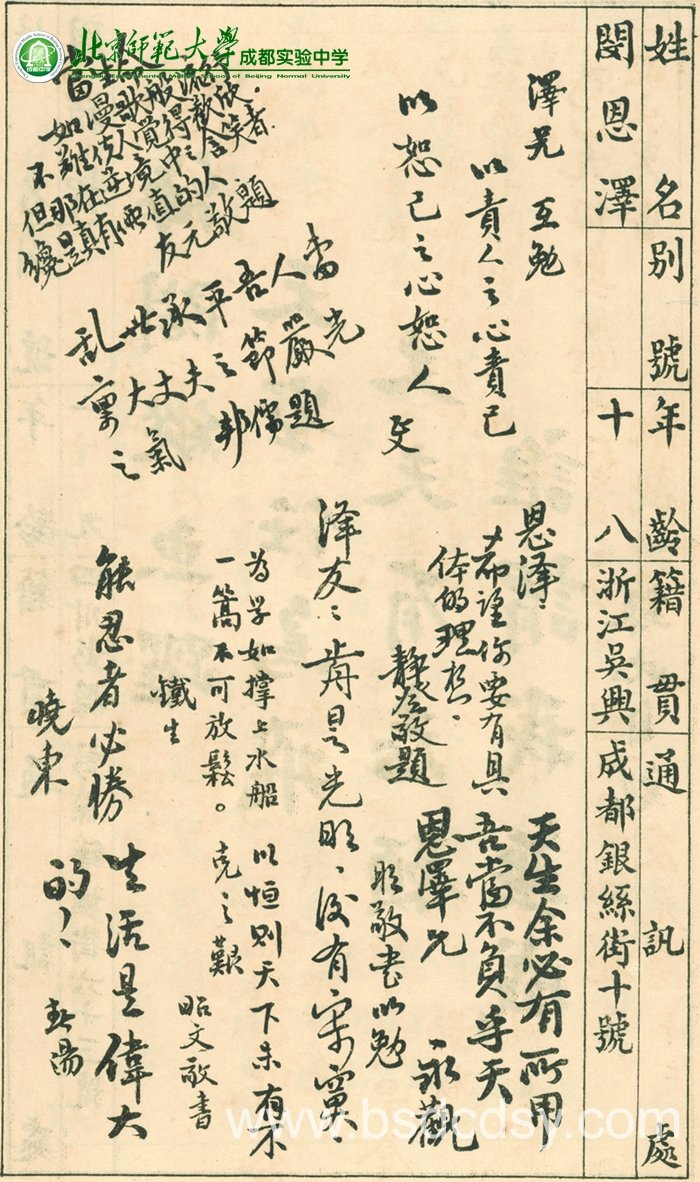 北京師範大學
成都实验中学
Chengdu Experimental Middle School of Beijing Normal University
成都中学
姓名
別號
年齡
籍貫
通訊處
閔恩澤
十八
浙江吳興
成都銀絲街十號
澤兄 互勉
以責人之心責己
以恕己之心恕人
當
如漫歌般
不難使人覺得歡欣
但那在逆境中之含笑者
纔是真有價值的人
友元敬題
亂世承平吾人
稟大丈夫之節
之氣
邦儒題
恩澤：
希望你要有具
体的理想。
敬題
天生余必有所用
吾當不負乎天
恩澤兄 永觀
敬書以勉
泽友：
是光明，沒有
為學如撐上水船
一篙不可放鬆。
鐵生
以恒則天下未有不
克之艱
昭文敬書
能忍者必勝
曉東
生活是偉大
的！
www.bsdcdsy.com